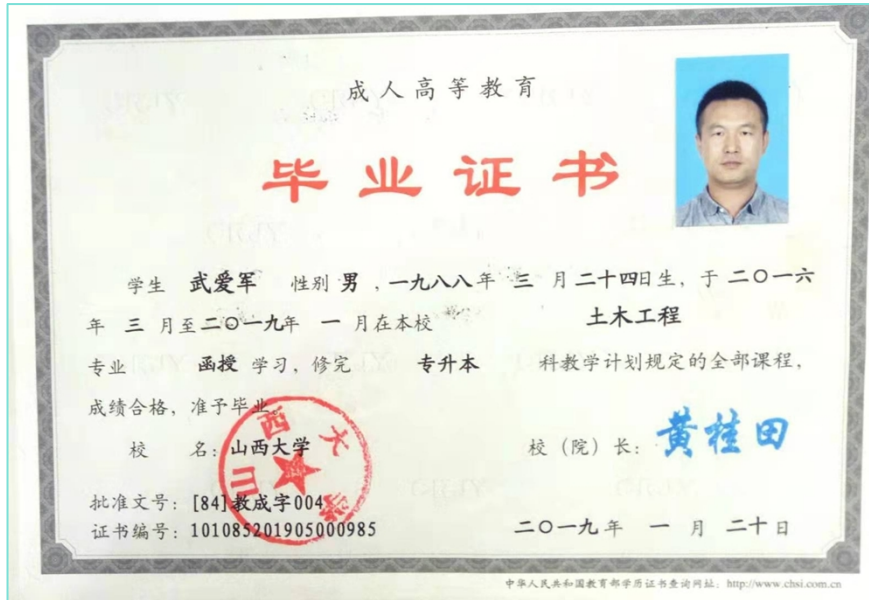 成人高等教育
毕业证书
学生 武爱军 性别 男 ,一九八八年 三 月 二十四日生,于 二〇一六
年 三 月至二〇一九年 一 月在本校 土木工程
专业 函授 学习,修完 专升本 科教学计划规定的全部课程,
成绩合格,准予毕业。
校 名:山西大学 校(院)长:黄桂田
山西大学
批准文号:[84]教成字004
证书编号:101085201905000985 二〇一九年 一 月 二十日
中华人民共和国教育部学历证书查询网址:http://www.chsi.com.cn